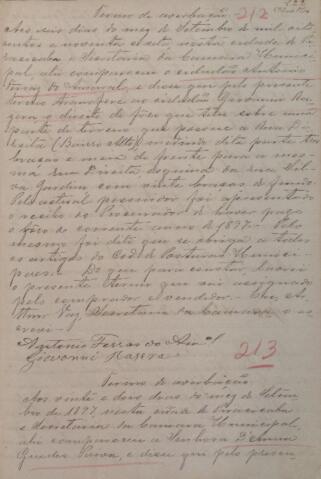 Termo de averbação 212
Aos seis dias do mez de Setembro de mil oito
centos e noventa e sete nesta cidade de Pi
racicaba e Secretaria da Camara Munici
pal, ahi compareceu o cidadão Antonio
Ferraz do Amaral e disse que pelo presente
termo transfere ao cidadão
o direito de fôro que tem sobre uma
parte de terreno que possue á Rua
Direita (Bairro Alto) medindo dita parte tres
braças e meia de frente para a mes
ma Rua Direita esquina da rua Sil
va Jardim com vinte braças de fundo.
Pelo actual possuidor foi apresentado
o recibo do Procurador de haver pago
o fôro do corrente anno de 1897. Pelo
mesmo foi dito que se obriga a todos
os artigos do Cod. de Posturas Munici
paes. Do que para constar, lavrei
o presente termo que vai assignado
pelo comprador e vendedor. Eu,
Vaz, Secretario da Camara o es
crevi.
Antonio Ferraz do Am.al
Giovanni
213
Termo de averbação
Aos vinte e dous dias do mez de Setem
bro de 1897, nesta cidade de Piracicaba
e Secretaria da Camara Municipal,
ahi compareceu a Senhora D.
Guedes e disse que pelo presen